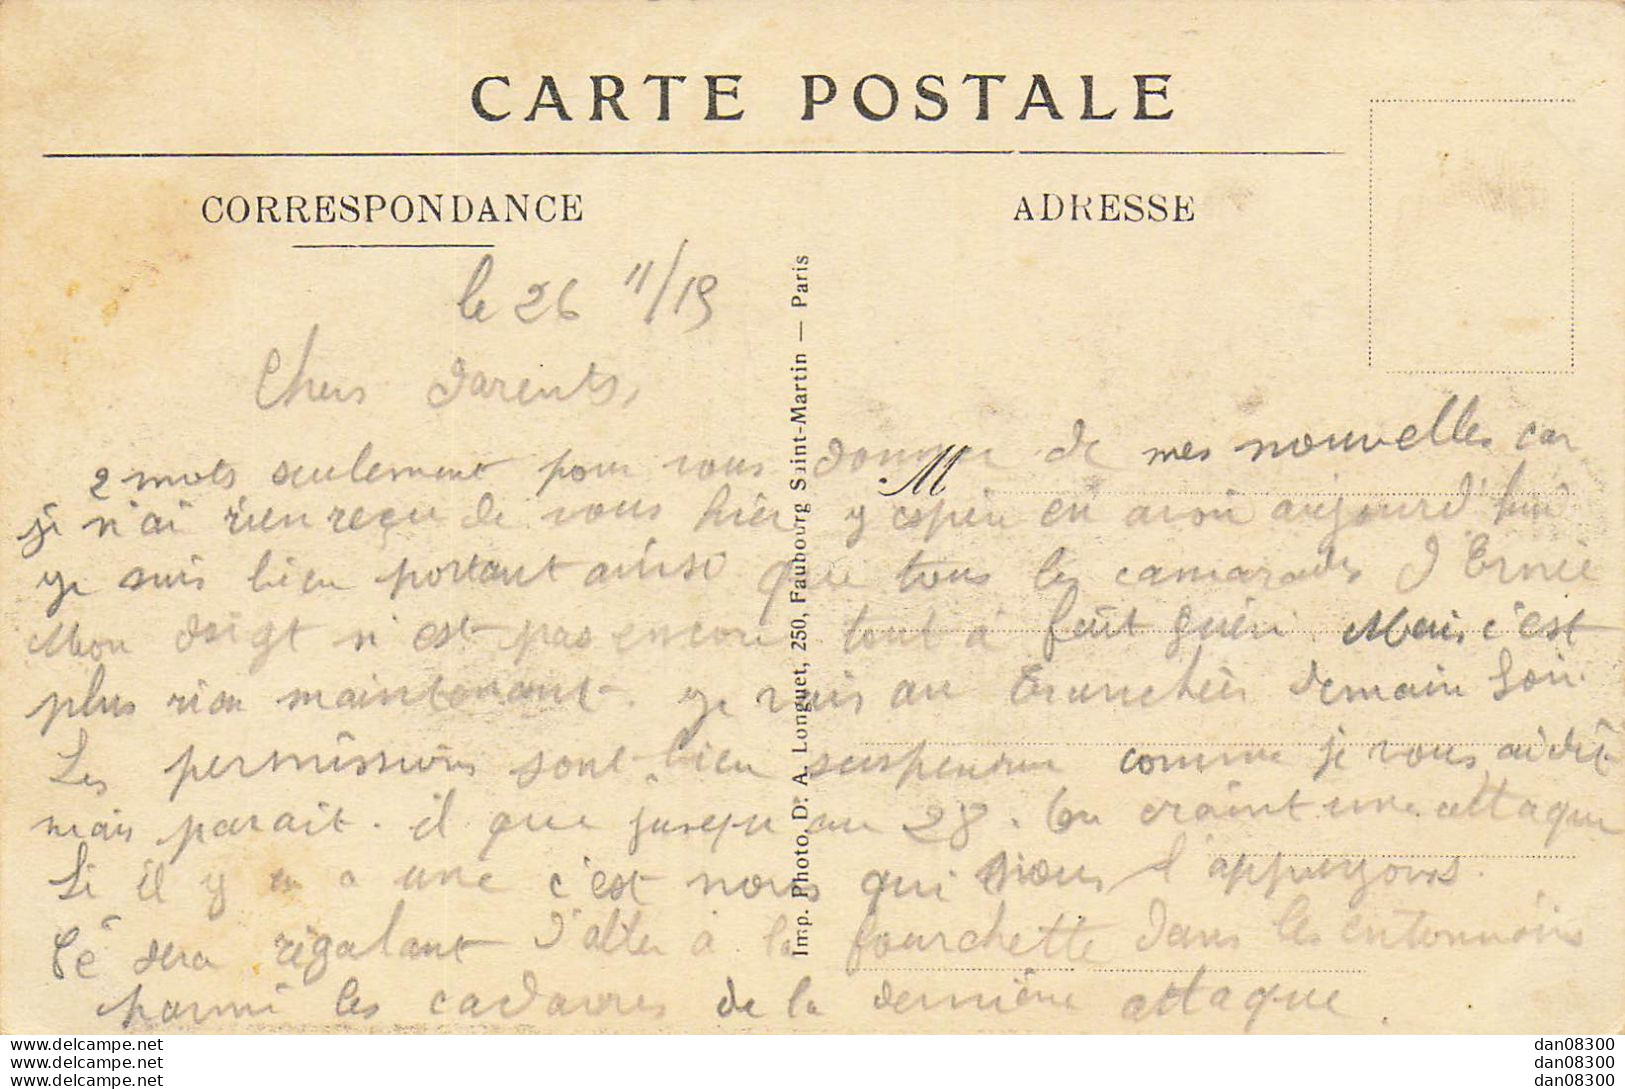 CARTE POSTALE
CORRESPONDANCE
ADRESSE
le 26 11/15
Chers Parents,
2 mots seulement pour vous donner de mes nouvelles car
M
je n'ai rien reçu de vous hier y espère en avoir aujourd'hui
je suis bien portant ainsi que tous les camarades d'Ernée
Mon doigt n'est pas encore tout à fait guéri. Mais c'est
plus rien maintenant. je vais au tranchées demain soir.
Les permissions sont bien suspendue comme je vous ai dit
mais parait. il que jusqu au 28. On craint une attaque
Si il y a une c'est nous qui nous l'appuyons.
Cé sera régalant d'aller à la fourchette dans les entonnoirs
parmi les cadavres de la dernière attaque.
Imp. Photo. Dr A. Longuet, 250, Faubourg Saint-Martin — Paris
www.delcampe.net
www.delcampe.net
www.delcampe.net
dan08300
dan08300
dan08300